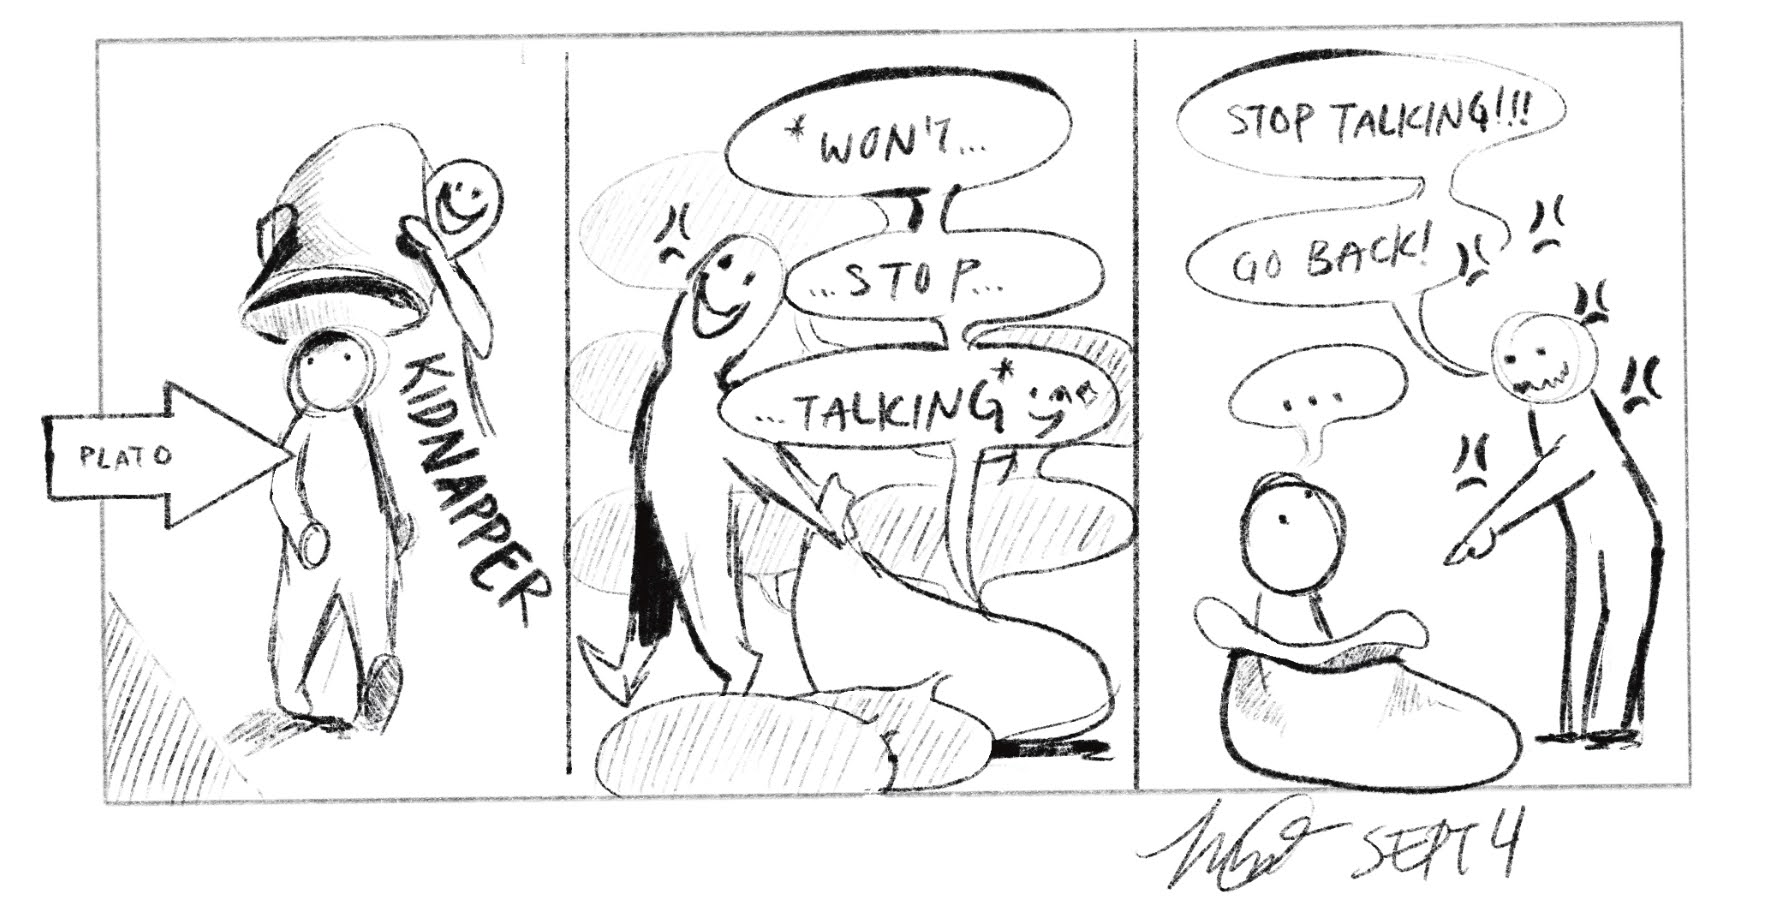 PLATO
KIDNAPPER
*WON'T...
...STOP...
...TALKING*
STOP TALKING!!!
GO BACK!
...
SEPT 4